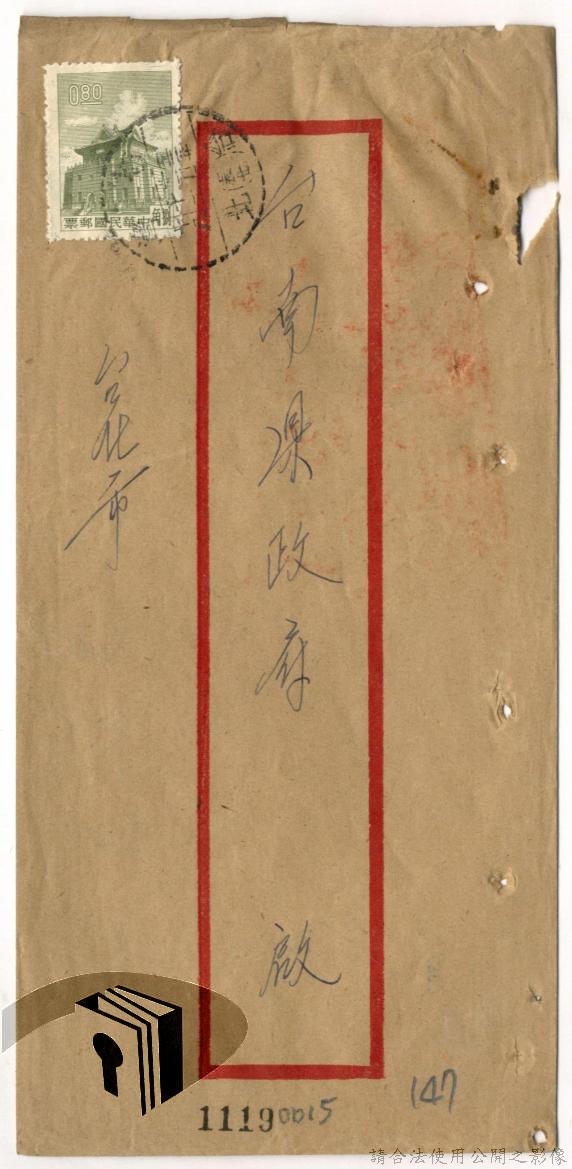 0.80
票郵國民華中
台南県政府 啟
台北市
11190015
147
請合法使用公開之影像